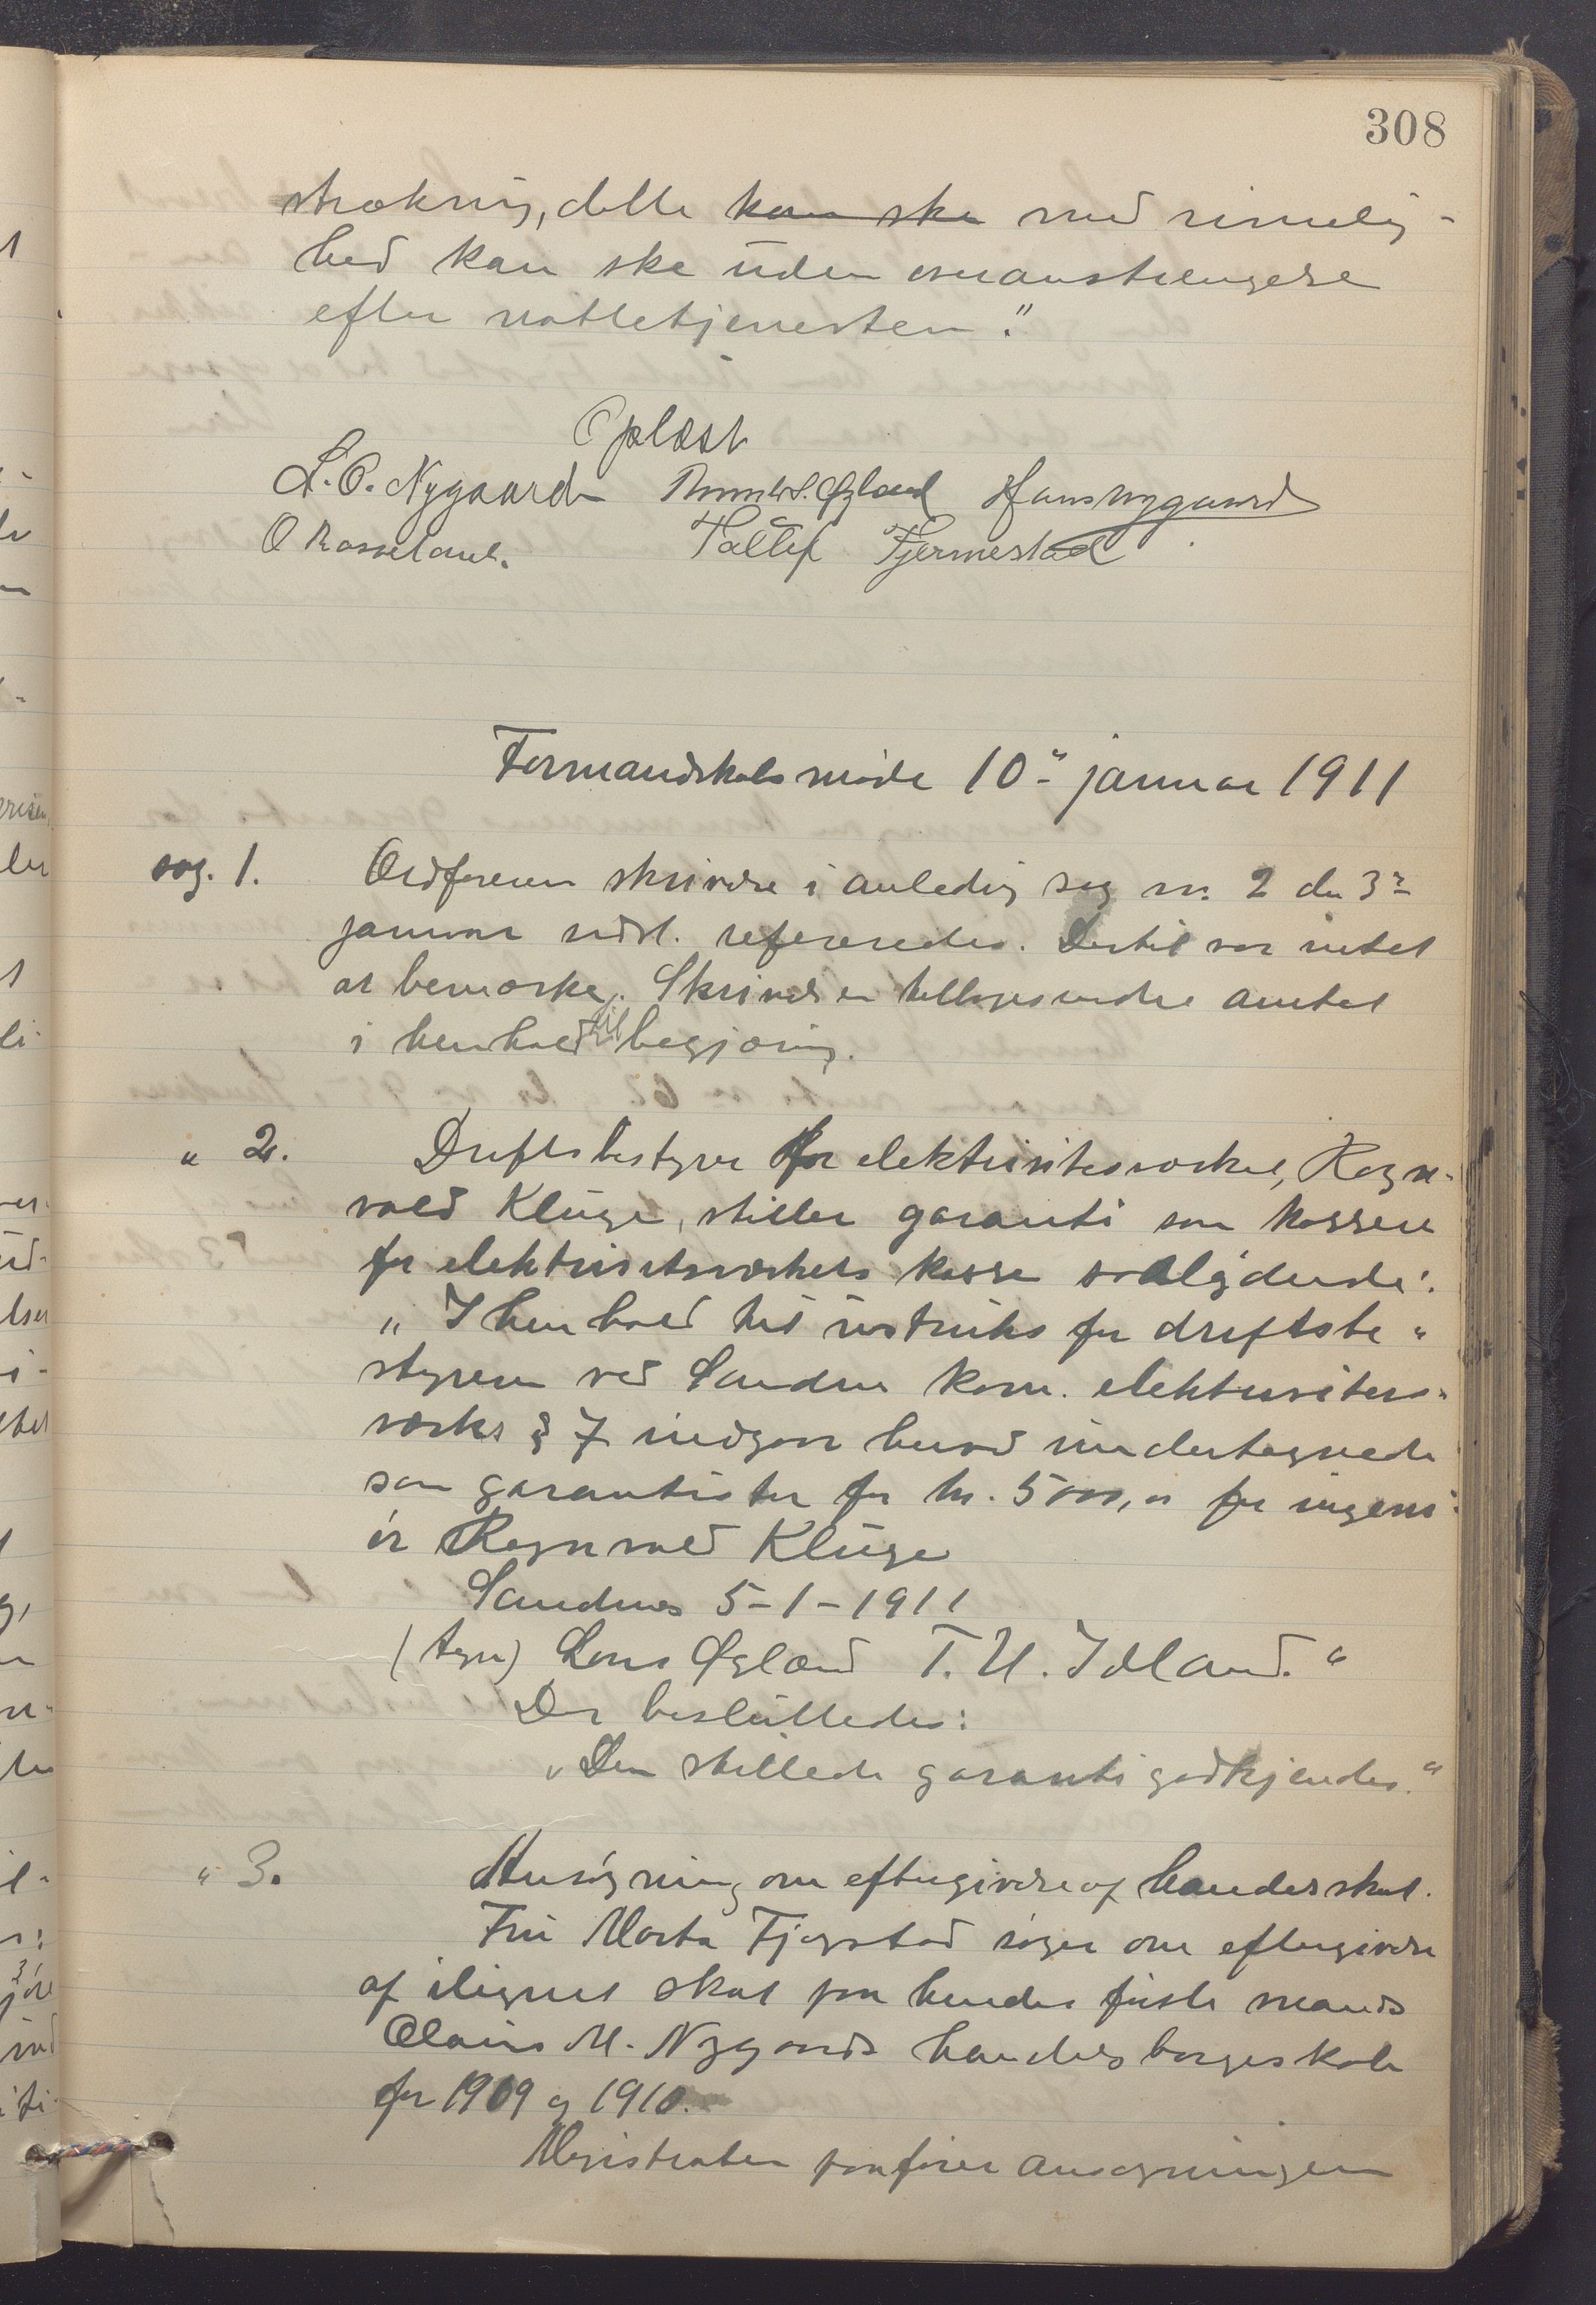 308
strækning, dette kan ske med rimelig-
hed kan ske uden overanstrengelse
efter nattetjenesten."
Oplæst
L. O. Nygaard Øgland Hans Nygaard
O Rosseland. Tallef Fjermestad
Formandskabsmøde 10- januar 1911
sag. 1. Ordførerens skrivelse i anledig sag nr. 2 den 3-
januar refereredes. Dertil var intet
at bemærke. Skrivelsen amtet
i henhold til begjæring.
" 2. Driftsbestyrer for elektricitetsværket, Ragn-
vald Kluge, stiller garanti som kasserer
for elektricitetsværkets kasse saalydende:
"I henhold til instruks for driftsbe-
styreren ved Sandnes kom. elektricitets-
værks § 7 indgaar herved undertegnede
som garantister for kr. 5000,00 for ingeni-
ør Ragnvald Kluge
Sandnes 5-1-1911
(tegn) Lars Øgland T. U. Idland."
Der besluttedes:
"Den stillede garanti godkjendes."
" 3. Ansøgning om eftergivelse af handelsskat.
Fru Marta Fjogstad søger om eftergivelse
af ilignet skat paa hendes første mands
Olaus M. Nygaards handelsborgerskab
for 1909 og 1910.
Magistraten paafører ansøgningen